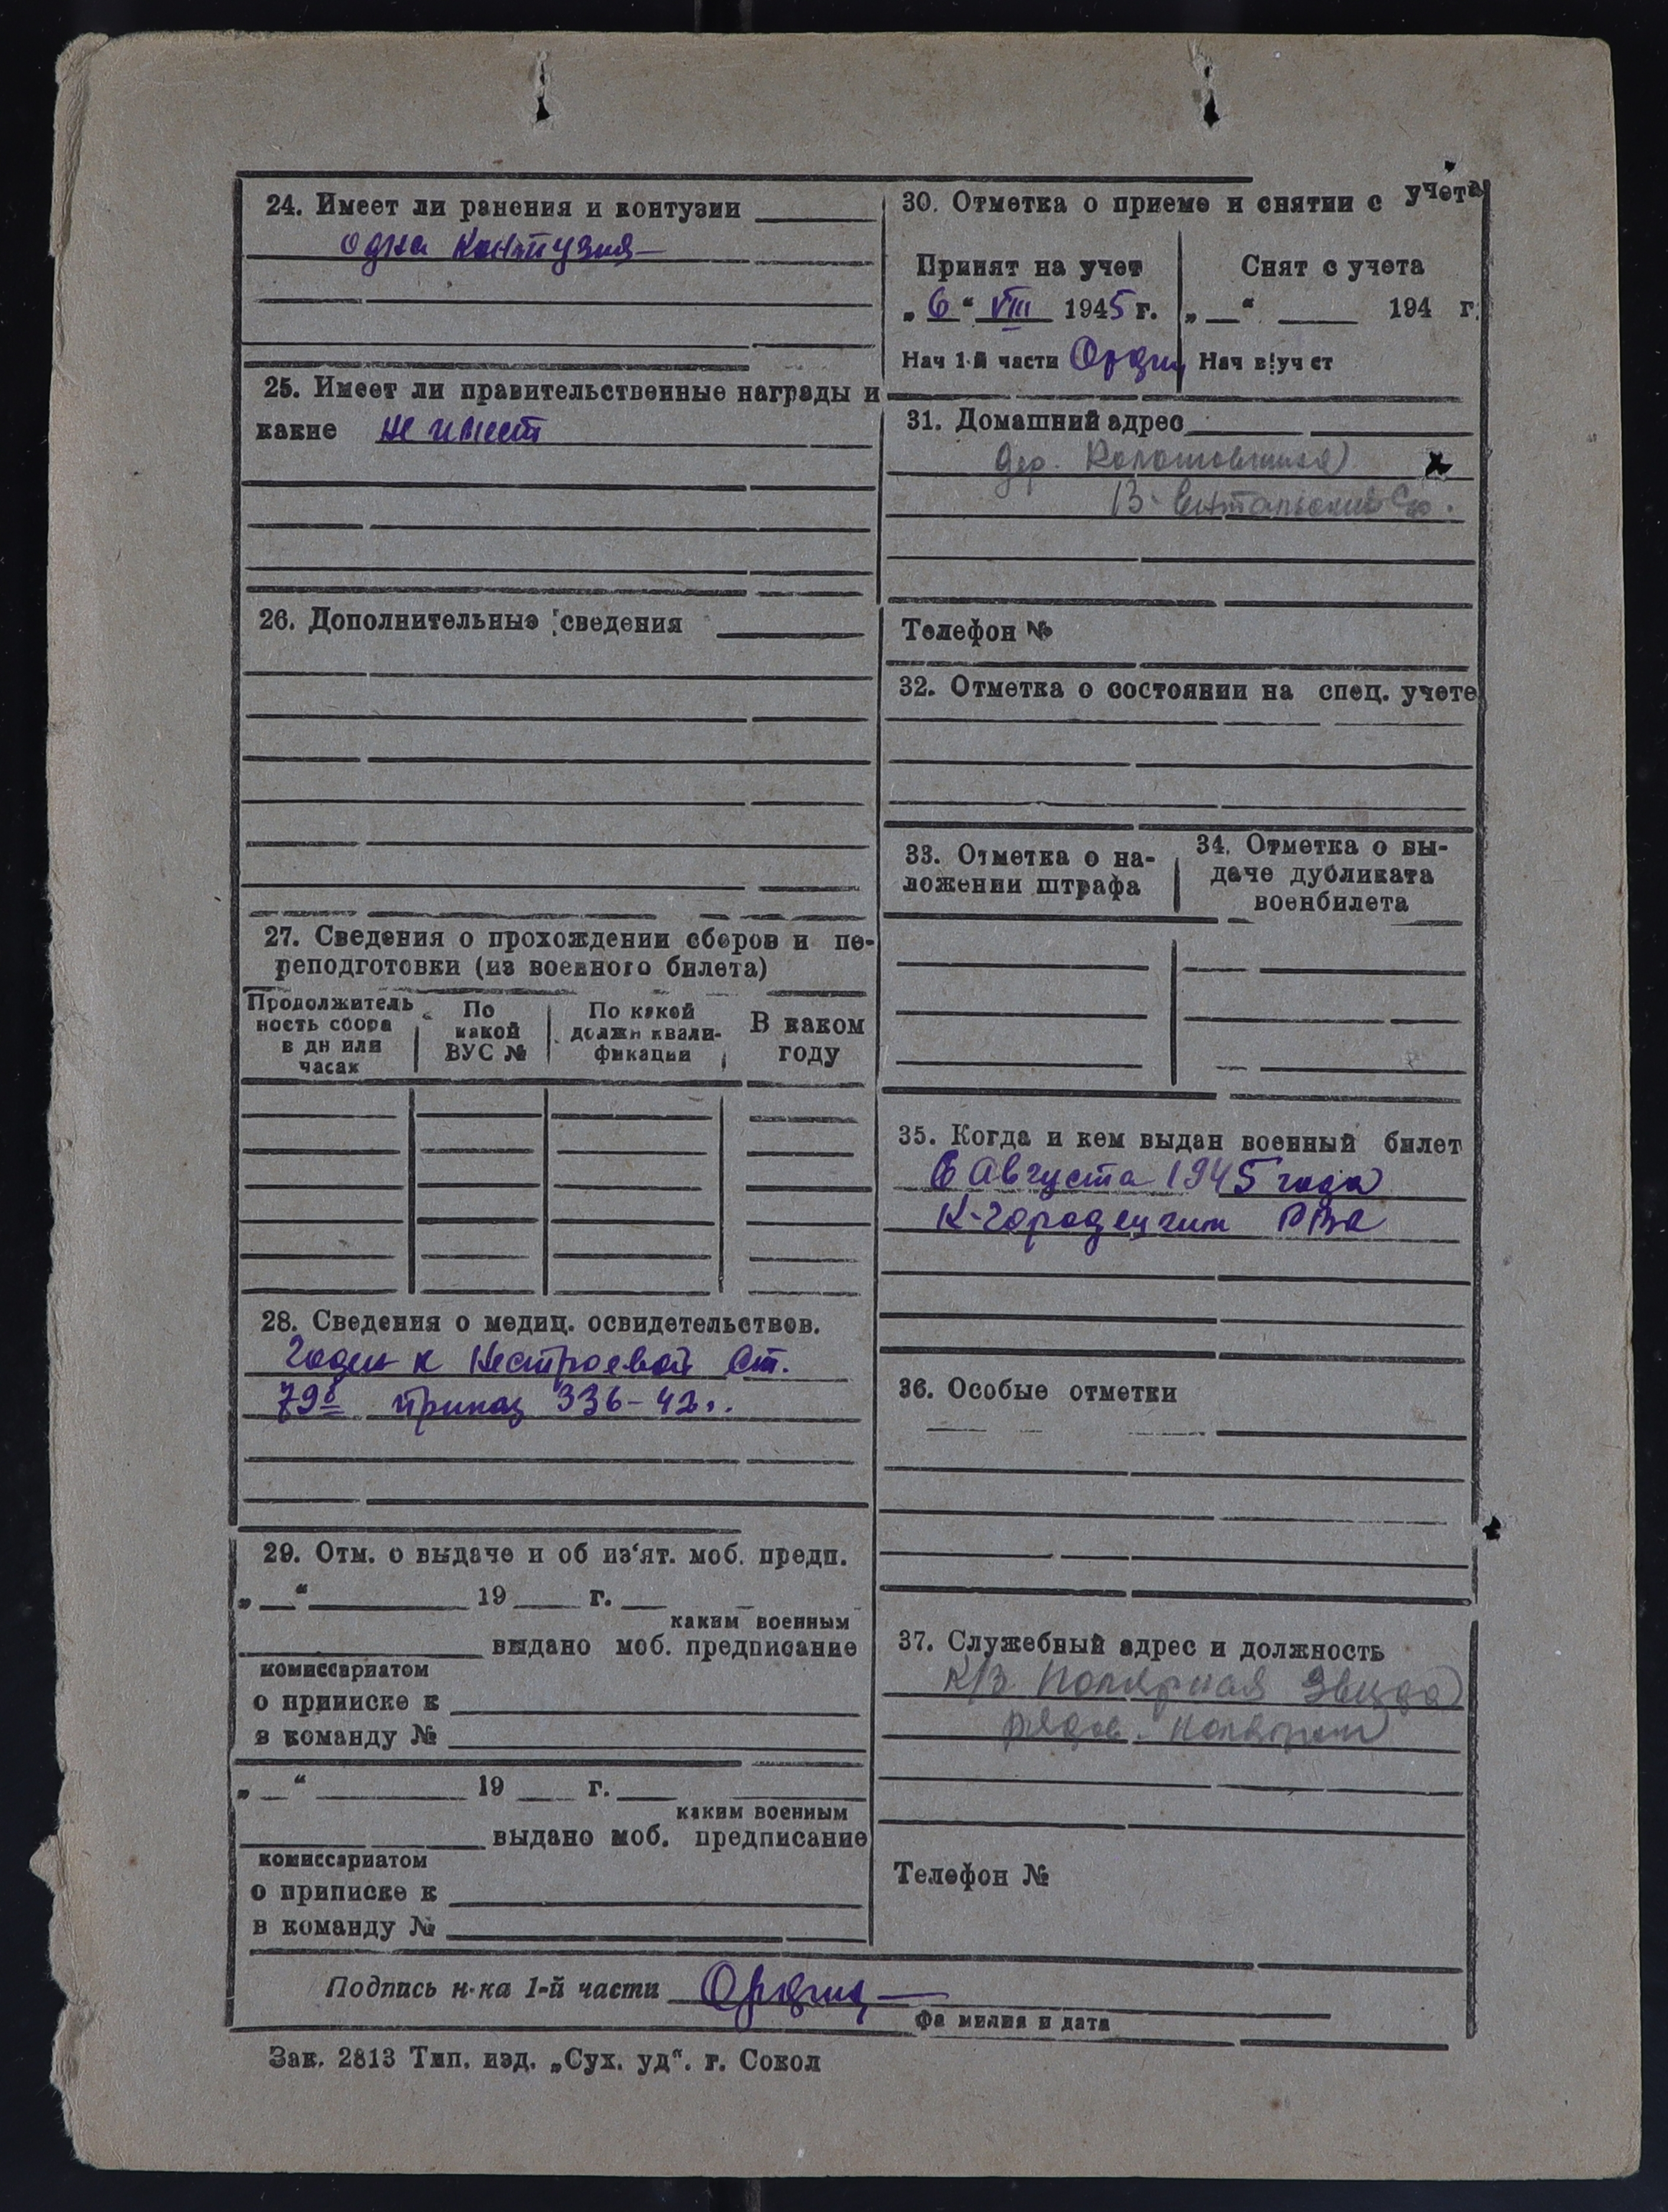 24. Имеет ли ранения и контузии
одна контузия
25. Имеет ли правительственные награды и
какие не имеет
26. Дополнительные сведения
27. Сведения о прохождении сборов и пе-
реподготовки (из военного билета)
Продолжитель
ность сбора
в дн или
часах
По
какой
ВУС №
По какой
должн квали-
фикации
В каком
году
28. Сведения о медиц. освидетельствов.
Годен к нестроевой ст.
79б приказ 336-42г.
29. Отм. о выдаче и об из‘ят. моб. предп.
„ “ 19 г.
каким военным
выдано моб. предписание
комиссариатом
о приписке к
в команду №
„ “ 19 г.
каким военным
выдано моб. предписание
комиссариатом
о приписке к
в команду №
30. Отметка о приеме и снятии с учета
Принят на учет
„6“ VIII 1945 г.
Нач 1-й части
Снят с учета
„ “ 194 г.
Нач в/учет
31. Домашний адрес
дер.
В-Ентальский с/с.
Телефон №
32. Отметка о состоянии на спец. учете
33. Отметка о на-
ложении штрафа
34. Отметка о вы-
даче дубликата
военбилета
35. Когда и кем выдан военный билет
6 Августа 1945 года
К-городецким РВК
36. Особые отметки
37. Служебный адрес и должность
к/з Полярная Звезда
рядов. колхозник
Телефон №
Подпись н-ка 1-й части
Фамилия и дата
Зак. 2813 Тип. изд. „Сух. уд“. г. Сокол